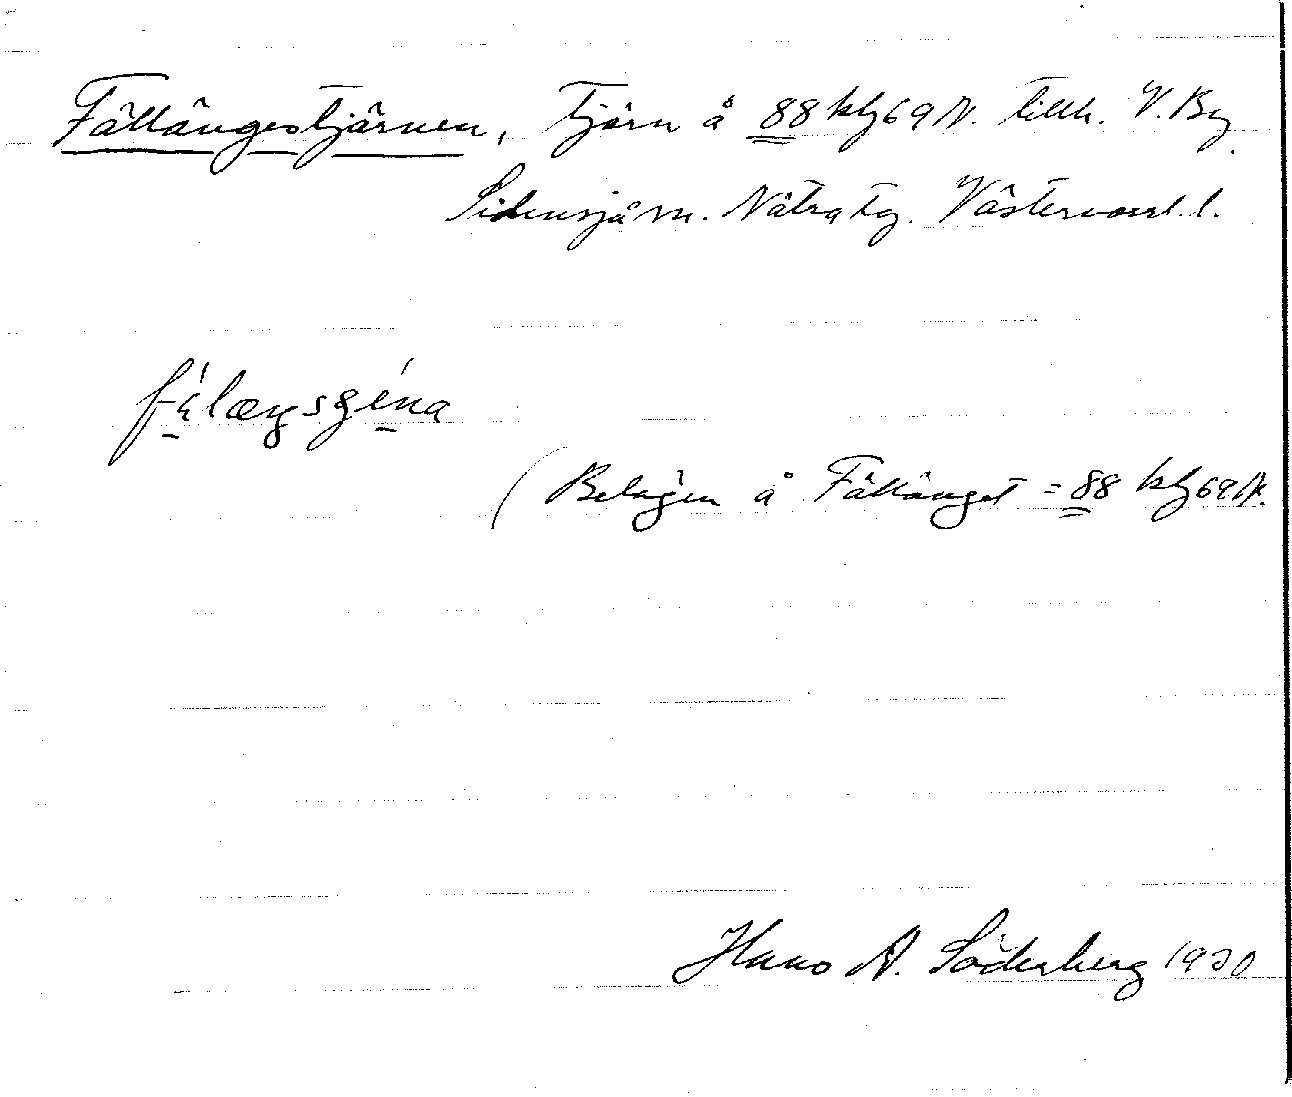 Fällängestjärnen, Tjärn å 88 klj 69 N. tillh. V. By
Sidensjö sn. Nätra tg. Västernorrl. l.
(Belägen å Fällänget = 88 klj 69 N.
Hans A. Söderberg 1930